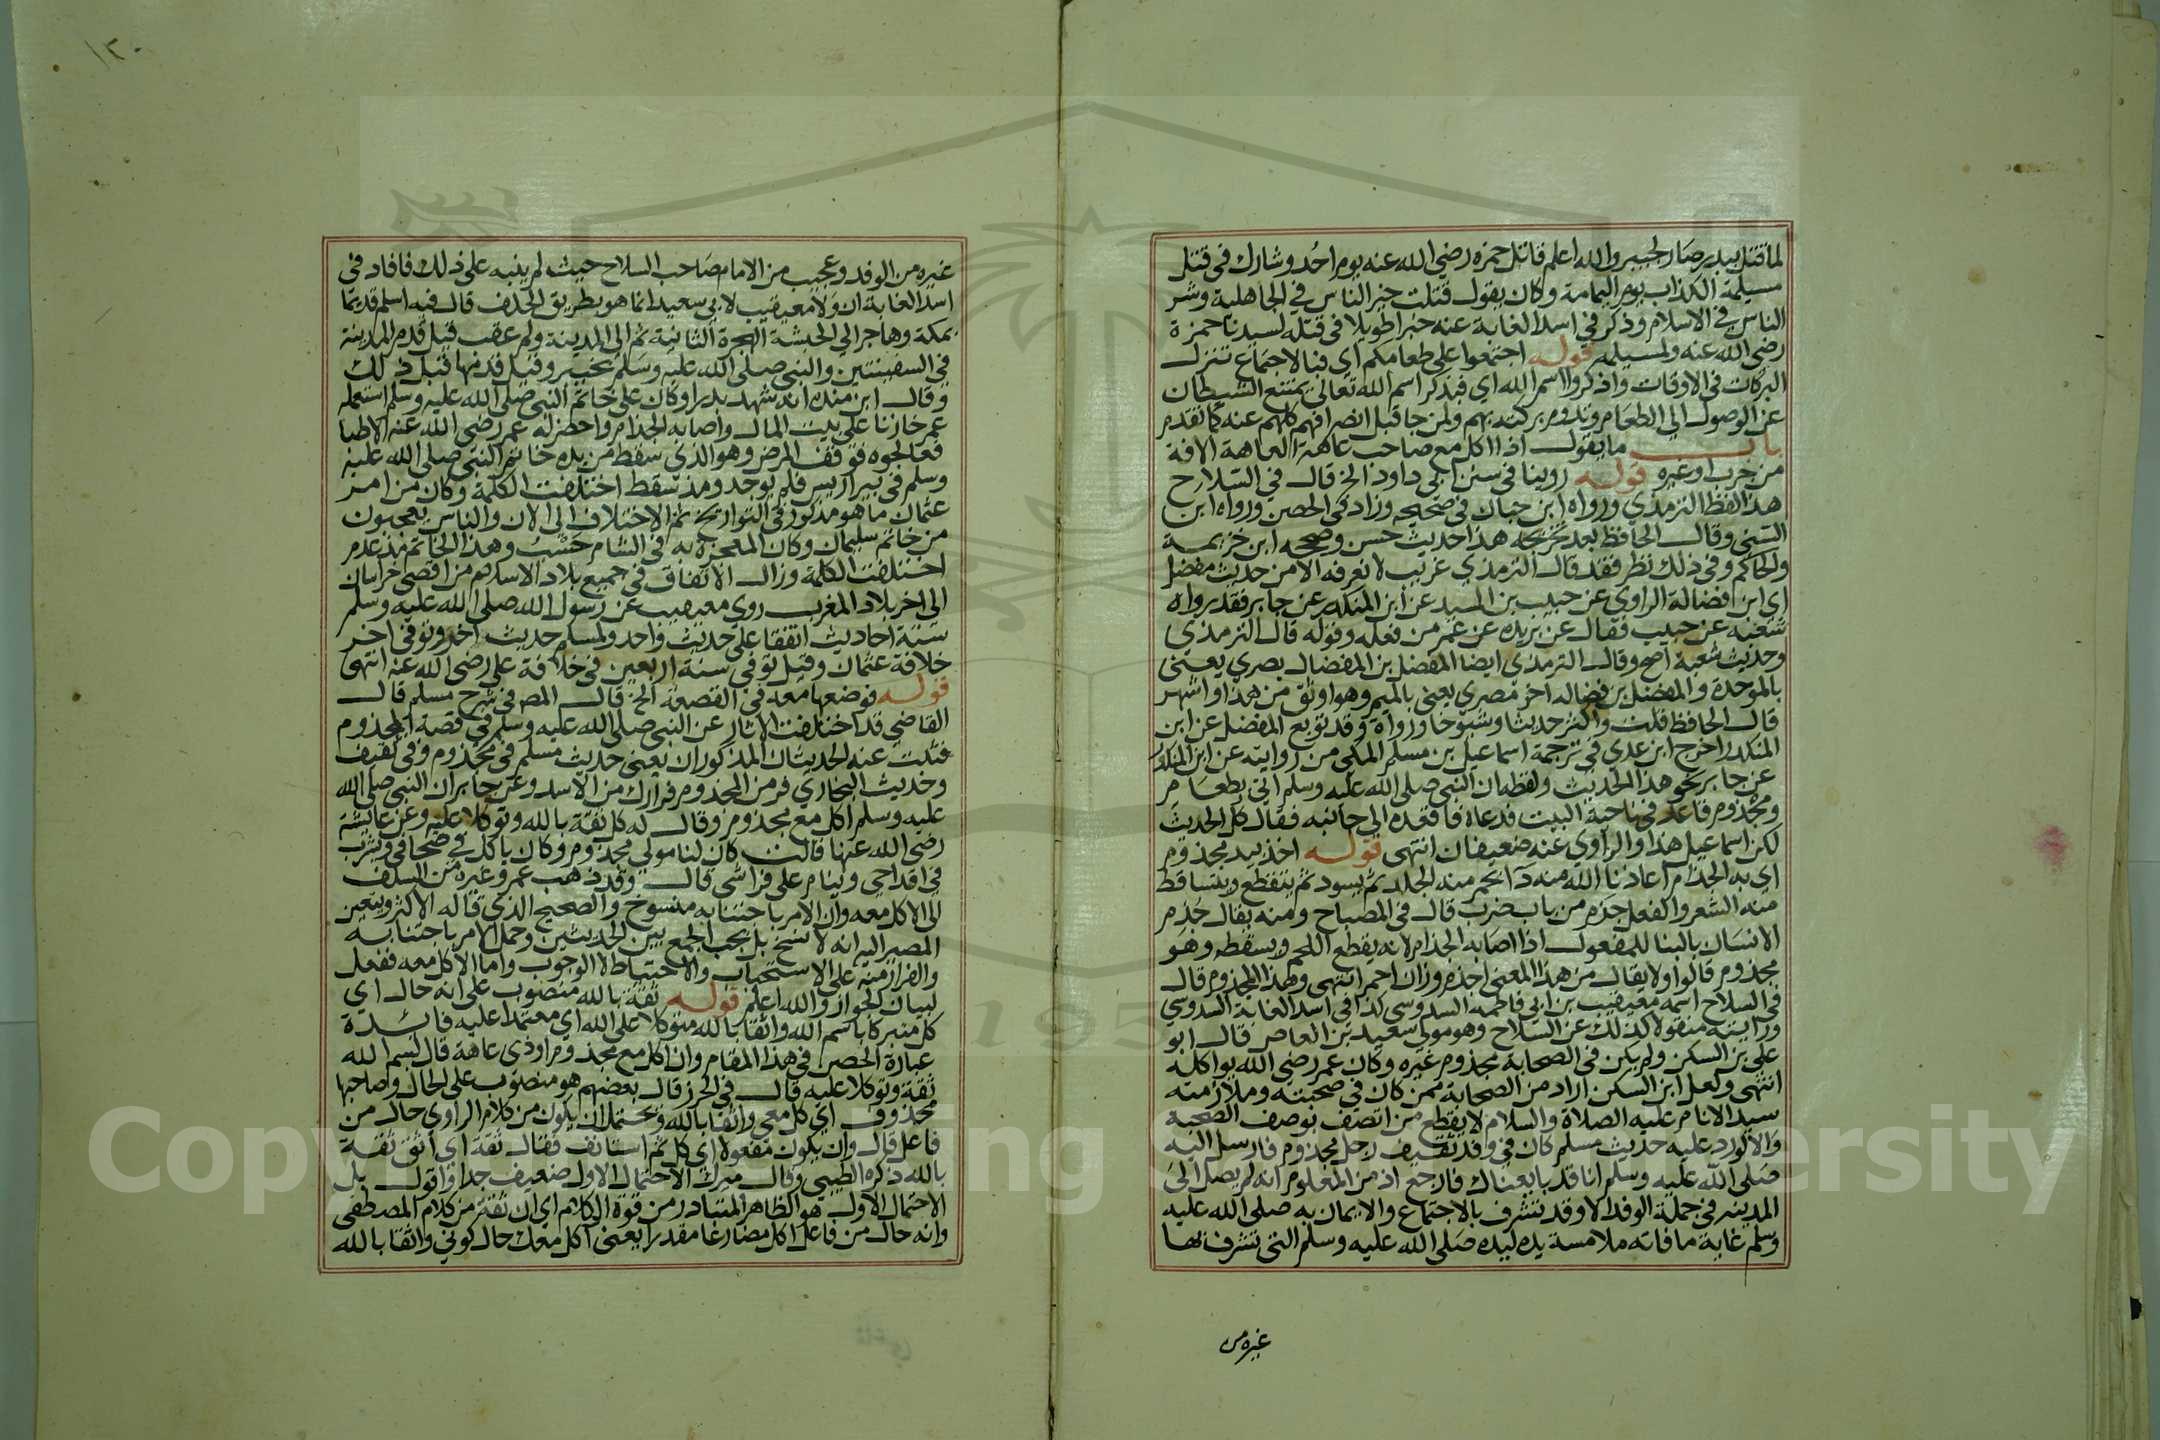 لما قتل ببدر صار لجبير والله اعلم قاتل حمزه رضي الله عنه يوم احُد وشارك في قتل
مسيلمة الكذاب يوم اليمامة وكان يقول قتلت خير الناس في الجاهلية وشر
الناس في الاسلام وذكر في اسد الغابة عنه خبرا طويلا في قتله لسيدنا حمزة
رضي الله عنه ولمسيلمه قوله اجتمعوا على طعامكم اي فبالاجتماع تنزل
البركات في الاوقات واذكروا اسم الله اي فبذكر اسم الله تعالى يمتنع الشيطان
عن الوصول الى الطعام وتدوم بركته بهم ولمن جا قبل انصرافهم كلهم عنه كما تقدم
باب ما يقول اذا اكل مع صاحب عاهة العاهة الافة
من جرب او غيره قوله روينا في سنن ابي داود الخ قال في السلاح
هذا لفظ الترمذي ورواه ابن حبان في صحيحه وزاد في الحصن ورواه ابن
السني وقال الحافظ بعد تخريجه هذا حديث حسن وصححه ابن خزيمة
والحاكم وفي ذلك نظر فقد قال الترمذي غريب لا نعرفه الا من حديث مفضل
اي ابن فضالة الراوي عن حبيب بن الشهيد عن ابن المنكدر عن جابر فقد رواه
شعبه عن حبيب فقال عن بريده عن عمر من فعله وقوله قال الترمذي
وحديث شعبة اصح وقال الترمذي ايضا المفضل بن المفضال بصري يعني
بالموحدة والمفضل بن فضاله اخر مصري يعني بالميم وهو اوثق من هذا واشهر
قال الحافظ قلت واكثر حديثا وشيوخا ورواة وقد توبع المفضل عن ابن
المنكدر اخرج ابن عدي في ترجمة اسماعيل بن مسلم المكي من روايته عن ابن المنكدر
عن جابر نحو هذا الحديث ولفظه ان النبي صلى الله عليه وسلم اتي بطعام
ومجذوم قاعد في ناحية البيت فدعاه فاقعده الى جانبه فقال كل الحديث
لكن اسماعيل هذا والراوي عنه ضعيفان انتهى قوله اخذ بيد مجذوم
اي به الجذام اعاذنا الله منه دا يحمر منه الجلد ثم يسود ثم يتقطع ويتساقط
منه الشعر والفعل جذم من باب ضرب قال في المصباح ومنه يقال جُذم
الانسان بالبنا للمفعول اذا اصابه الجذام لانه يقطع اللحم ويسقطه وهو
مجذوم قالوا ولا يقال من هذا المعنى اجذم وزان احمر انتهى وهذا المجذوم قال
في السلاح اسمه معيقيب بن ابي فاطمه السدوسي كذا في اسد الغابة السدوسي
ورايته منقولا كذلك عن السلاح وهو مولى سعيد بن العاص قال ابو
علي بن السكن ولم يكن في الصحابة مجذوم غيره وكان عمر رضي الله يواكله
انتهى ولعل ابن السكن اراد من الصحابة ممن كان في صحبته وملازمته
سيد الانام عليه الصلاة والسلام لا يقطع من اتصف بوصف الصحبة
والا لورد عليه حديث مسلم كان في وفد ثقيف رجل مجذوم فارسل اليه
صلى الله عليه وسلم انا قد بايعناك فارجع اذ من المعلوم انه لم يصل الى
المدينه في جملة الوفد الا وقد تشرف بالاجتماع والايمان به صلى الله عليه
وسلم غاية ما فاته ملامسة يده ليده صلى الله عليه وسلم التي تشرف بها
غيره من
١٢٠
غيره من الوفد وعجيب من الامام صاحب السلاح حيث لم ينبه على ذلك فافاد في
اسد الغابة ان ولا معيقيب لابي سعيد انما هو بطريق الحلف قال فيه اسلم قديما
بمكة وهاجر الى الحبشة الهجرة الثانية ثم الى المدينة ولم عقب قيل قدم المدينة
في السفينتين والنبي صلى الله عليه وسلم بخيبر وقيل قدمها قبل ذلك
وقال ابن منده انه شهد بدرا وكان على خاتم النبي صلى الله عليه وسلم استعمله
عمر خازنا على بيت المال واصابه الجذام واحضر له عمر رضي الله عنه الاطبا
فعالجوه فوقف المرض وهو الذي سقط من يده خاتم النبي صلى الله عليه
وسلم في بير اريس فلم يوجد ومذ سقط اختلفت الكلمة وكان من امر
عثمان ما هو مذكور في التواريخ ثم الاختلاف الى الان والناس يعجبون
من خاتم سليمان وكان المعجزة به في الشام حسب وهذا الخاتم مذ عدم
اختلفت الكلمة وزال الاتفاق في جميع بلاد الاسلام من اقصى خراسان
الى اخر بلاد المغرب روى معيقيب عن رسول الله صلى الله عليه وسلم
ستة احاديث اتفقا على حديث واحد ولمسلم حديث اخر وتوفي اخر
خلافة عثمان وقيل توفي سنة اربعين في خلافة علي رضي الله عنه انتهى
قوله فوضعها معه في القصعة الخ قال المص في شرح مسلم قال
القاضي قد اختلفت الاثار عن النبي صلى الله عليه وسلم في قصة المجذوم
فثبت عنه الحديثان المذكوران يعني حديث مسلم في مجذوم وفي ثقيف
وحديث البخاري فر من المجذوم فرارك من الاسد وعن جابر ان النبي صلى الله
عليه وسلم اكل مع مجذوم وقال له كل ثقة بالله وتوكلا عليه وعن عائشة
رضي الله عنها قالت كان لنا مولى مجذوم وكان ياكل في صحافي ويشرب
في اقداحي وينام على فراشي قال وقد ذهب عمر وغيره من السلف
الى الاكل معه وان الامر باجتنابه منسوخ والصحيح الذي قاله الاكثر ويتعين
المصير اليه انه لا نسخ بل يجب الجمع بين الحديثين وحمل الامر باجتنابه
والفرار منه على الاستحباب والاحتياط لا الوجوب واما الاكل معه ففعل
لبيان الجواز والله اعلم قوله ثقة بالله منصوب على انه حال اي
كل متبركا باسم الله واثقا بالله متوكلا على الله اي معتمدا عليه فائدة
عبارة الحصن في هذا المقام وان اكل مع مجذوم او ذي عاهة قال بسم الله
ثقة وتوكلا عليه قال في الحرز قال بعضهم هو منصوب على الحال وصاحبها
محذوف اي كل معي واثقا بالله ويحتمل ان يكون من كلام الراوي حال من
فاعل قال وان يكون مفعولا اي كل ثم استانف فقال ثقة اي اثق ثقة
بالله ذكره الطيبي وقال ميرك الاحتمال الاول ضعيف جدا واقول بل
الاحتمال الاول هو الظاهر المتبادر من قوة الكلام اي ان ثقة من كلام المصطفى
وانه حال من فاعل اكل مضارعا مقدرا يعني اكل معك حال كوني واثقا بالله